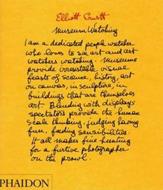 Elliott Erwitt
Museum Watching
I am a dedicated people watcher
who loves to see art and art
watchers watching. Museums
provide irresistible visual
feasts of science, history, art
on canvas, in sculpture, in
buildings that are themselves
art. Blending with displays
spectators provide the human
scale thinking, judging, having
fun, fading sensibilities
It all makes good hunting
for a furtive photographer
on the prowl
PHAIDON